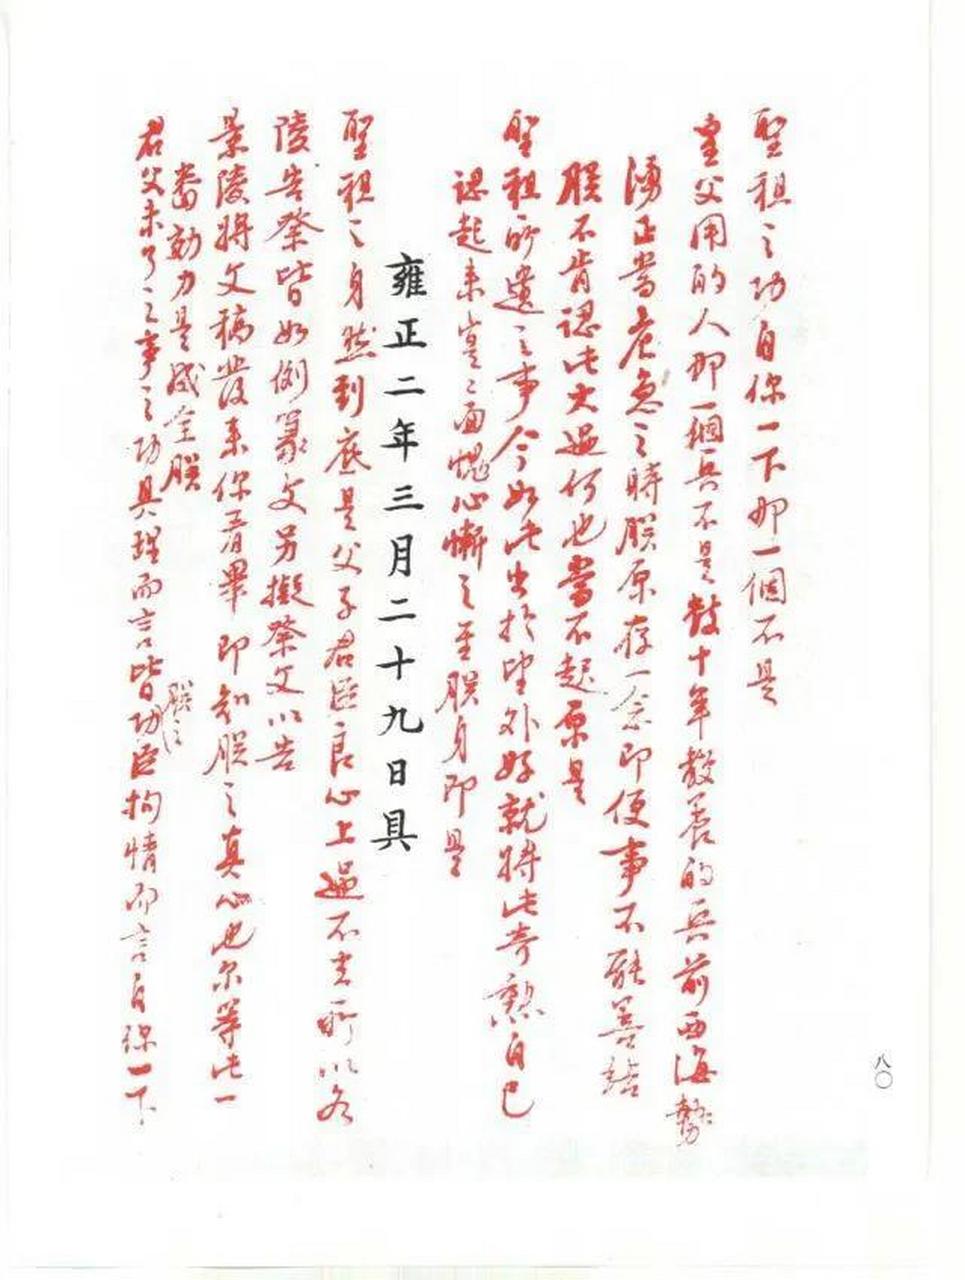 聖祖之功自你一下那一個不是
皇父用的人那一個兵不是數十年教養的兵前西海勢
湧正當危急之時朕原存一念即便事不能善結
朕不肯認此大過何也當不起原是
聖祖所遺之事今如此出於望外好就將此奇勲自己
認起來豈止面愧心慚之至朕身即是
雍正二年三月二十九日具
聖祖之身然到底是父子君臣良心上過不去所以各
陵告祭皆如例篆文另擬祭文以告
景陵將文稿發来你看畢即知朕之真心也尔等此一
番効力是成全朕
君父未了之事之功具理而言皆朕之功臣拘情而言自你一下
八〇